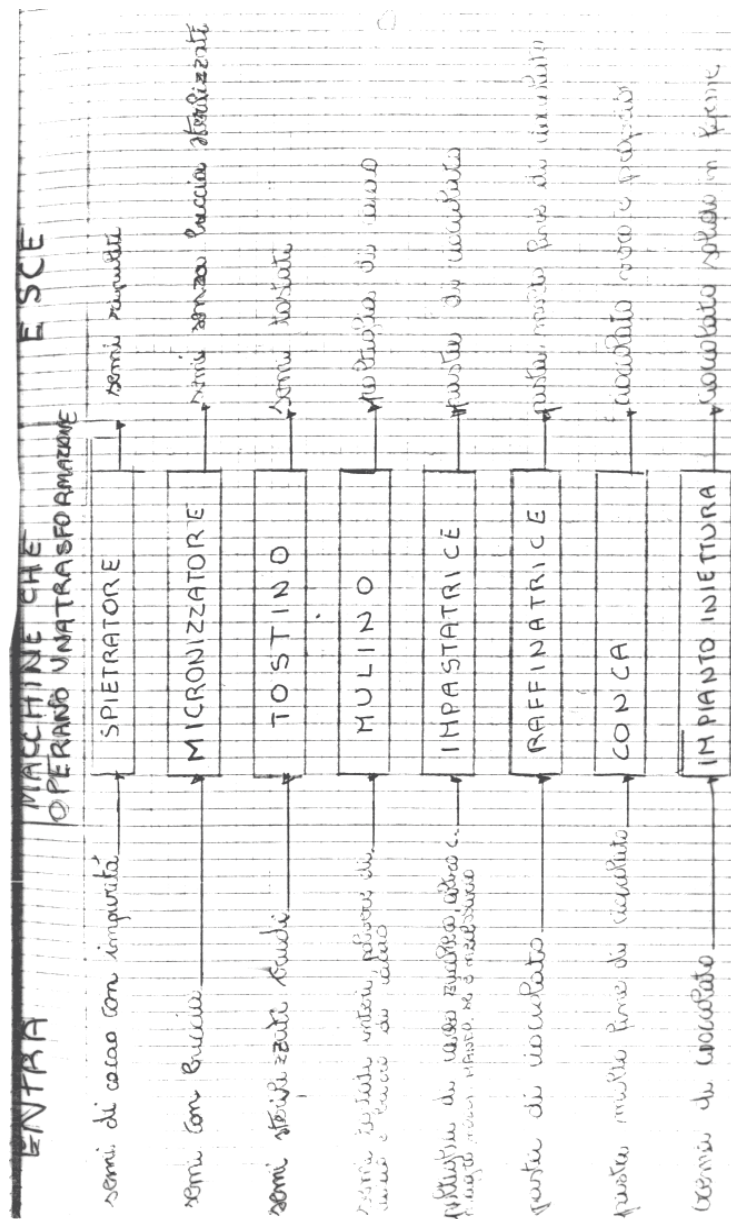 ENTRA MACCHINE CHE ESCE
OPERANO UNA TRASFORMAZIONE
semi di cacao con impurità SPIETRATORE semi ripuliti
semi con buccia MICRONIZZATORE semi senza buccia sterilizzati
semi sterilizzati crudi TOSTINO semi tostati
semi tostati interi MULINO di cacao
di cacao zucchero, IMPASTATRICE pasta di cioccolato
pasta di cioccolato RAFFINATRICE pasta molto fine di cioccolato
pasta molto fine di cioccolato CONCA cioccolato
di cioccolato IMPIANTO INIETTURA cioccolato solido in forme